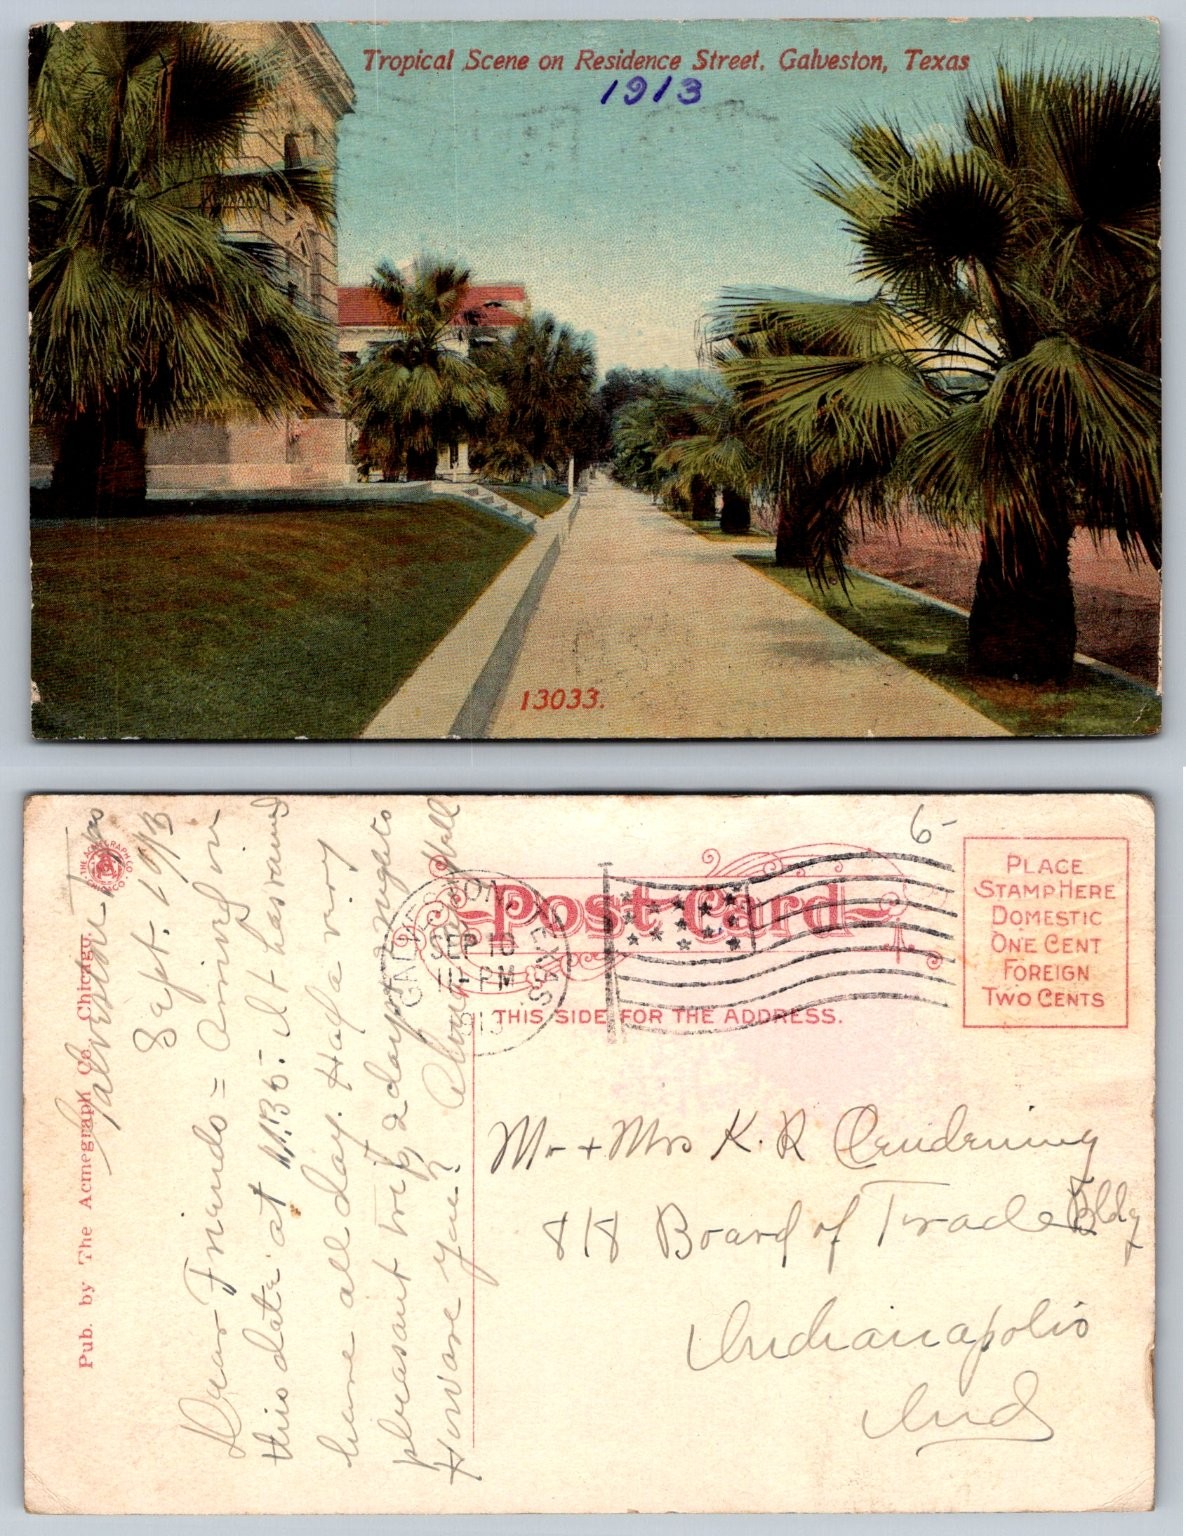 Tropical Scene on Residence Street, Galveston, Texas
1913
13033.
6-
Post Card
PLACE
STAMP HERE
DOMESTIC
ONE CENT
FOREIGN
TWO CENTS
THIS SIDE FOR THE ADDRESS.
GALVESTON, TEXAS.
SEP 10
11-PM
1913
Pub. by The Acmegraph Co., Chicago.
Galvestone
Sept. 1913
Dear Friends = Arrived on
this date at 11.35 - it has rained
here all day. Had a very
pleasant trip, 2 days + nights
How are you?
Mr + Mrs K. R Clendenning
818 Board of Trade Bldg
Indianapolis
Ind